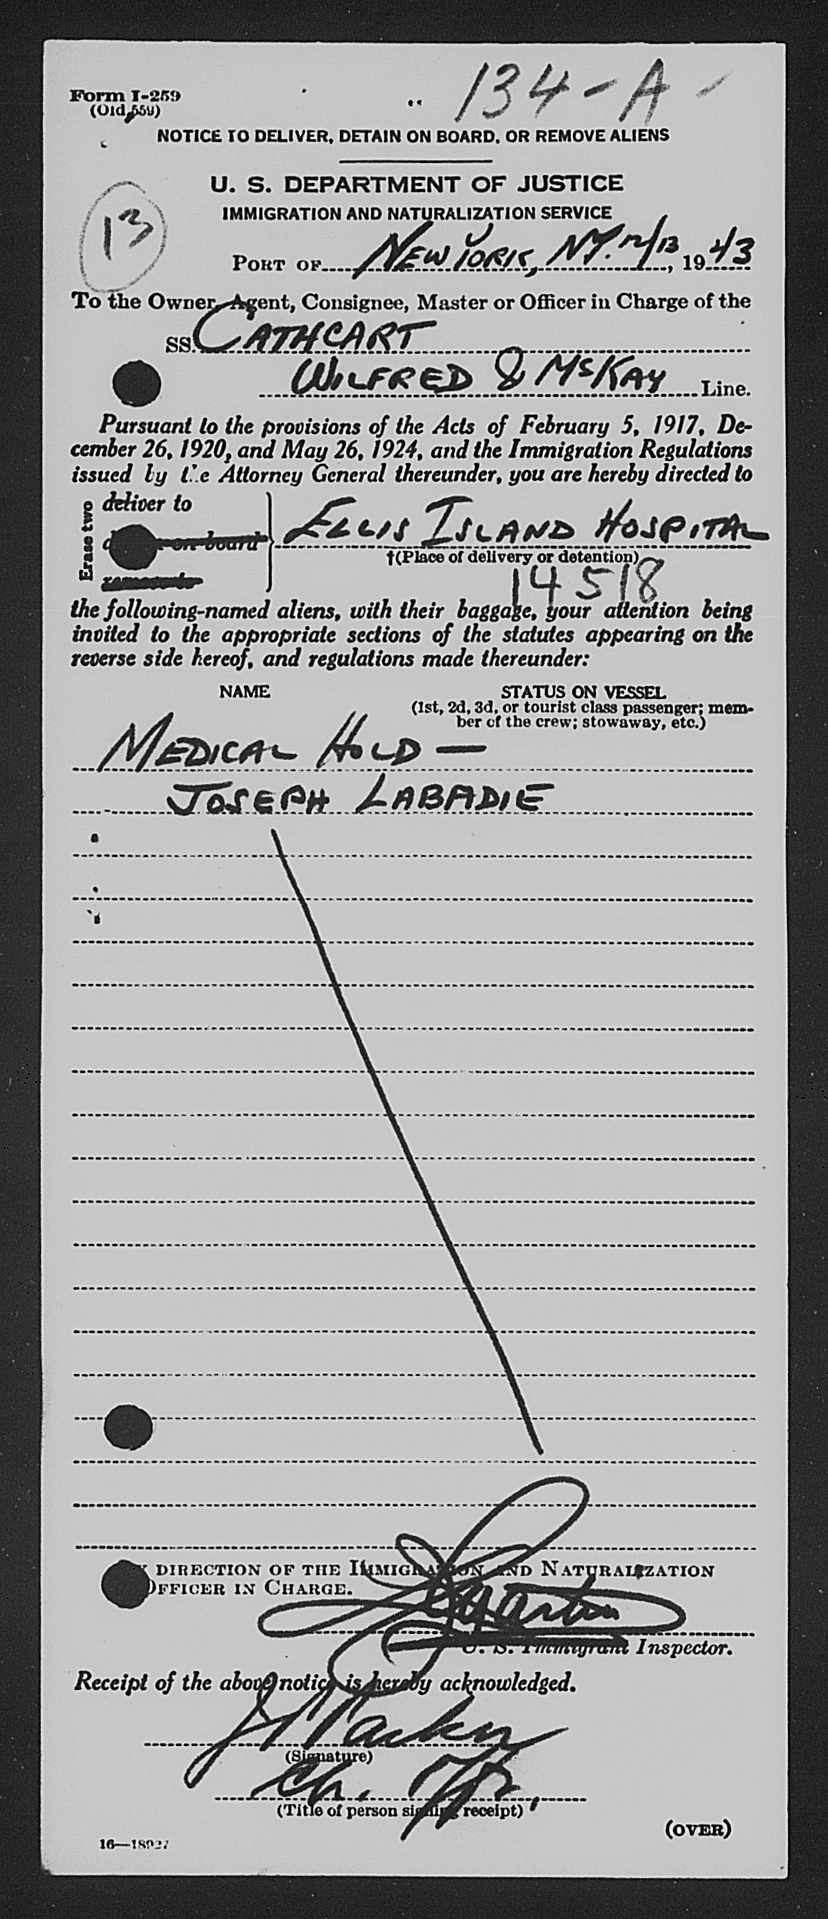 134-A
Form I-259
(Old 559)
NOTICE TO DELIVER, DETAIN ON BOARD, OR REMOVE ALIENS
U. S. DEPARTMENT OF JUSTICE
IMMIGRATION AND NATURALIZATION SERVICE
13
PORT OF NEW YORK, NY. 12/13, 1943
To the Owner, Agent, Consignee, Master or Officer in Charge of the
SS. CATHCART
WILFRED & McKAY Line.
Pursuant to the provisions of the Acts of February 5, 1917, De-
cember 26, 1920, and May 26, 1924, and the Immigration Regulations
issued by the Attorney General thereunder, you are hereby directed to
Erase two
deliver to
on board
remove to
ELLIS ISLAND HOSPITAL
†(Place of delivery or detention)
14518
the following-named aliens, with their baggage, your attention being
invited to the appropriate sections of the statutes appearing on the
reverse side hereof, and regulations made thereunder:
NAME STATUS ON VESSEL
(1st, 2d, 3d, or tourist class passenger; mem-
ber of the crew; stowaway, etc.)
MEDICAL HOLD —
JOSEPH LABADIE
DIRECTION OF THE IMMIGRATION AND NATURALIZATION
OFFICER IN CHARGE.
U. S. Immigrant Inspector.
Receipt of the above notice is hereby acknowledged.
(Signature)
Ch. Ofr.
(Title of person signing receipt)
(OVER)
16—18927